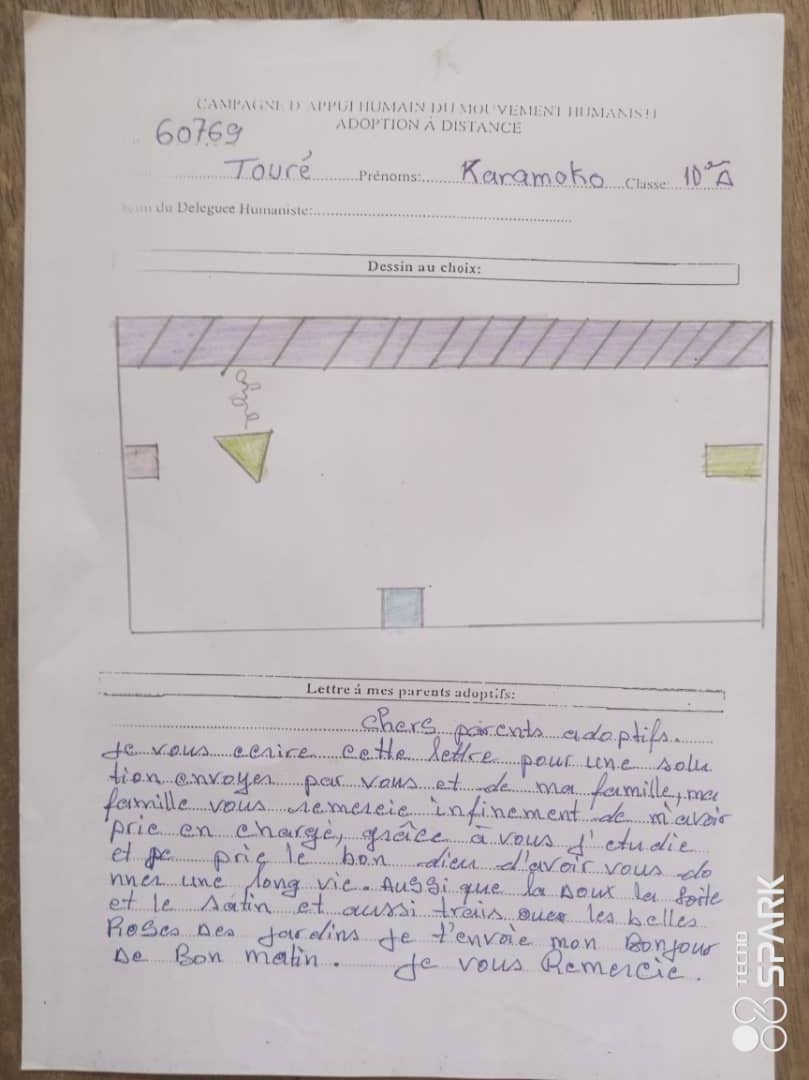 CAMPAGNE D'APPUI HUMAIN DU MOUVEMENT HUMANISTE
ADOPTION À DISTANCE
60769
Touré Prénoms: Karamoko Classe: 10e A
du Deleguee Humaniste:
Dessin au choix:
Lettre á mes parents adoptifs:
chers parents adoptifs.
Je vous ecrire cette lettre pour une salu
tion envoyer par vous et de ma famille, ma
famille vous remercie infinement de m'avoir
prie en charge, grâce à vous j'etudie
et je prie le bon dieu d'avoir vous do
nner une long vie. Aussi que la Doux la Soite
et le Satin et aussi les belles
Roses Des Jardins Je t'envoie mon Bonjour
De Bon matin. Je vous Remercie.
TECNO
SPARK